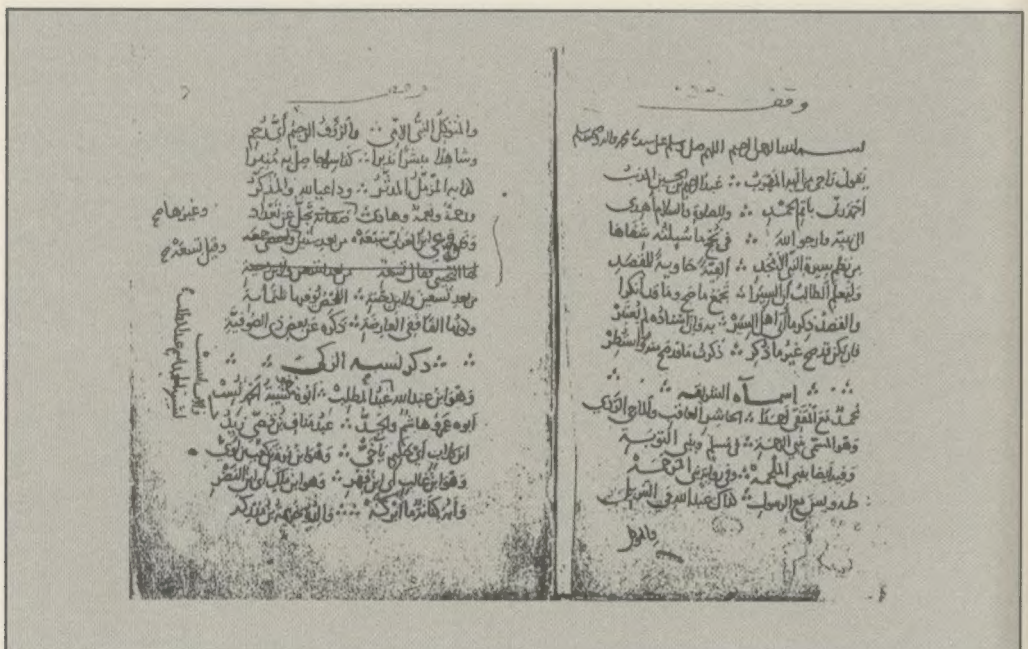 وقف
بسم الله الرحمن الرحيم اللهم صل وسلم على سيدنا محمد واله وصحبه وسلم
يقول راجي من اليه المهرب ∴ عبد الرحيم بن الحسين المذنب
احمد ربي باتم الحمد ∴ وللصلاة والسلام أهدي
الى نبيه وارجو الله ∴ في نجح ما سئلته شفاها
من نظم سيرة النبي الامجد ∴ الفية حاوية للقصد
وليعلم الطالب أن السيرا ∴ تجمع ما صح وما قد أنكرا
والقصد ذكر ما أتى أهل السير ∴ به وان اسناده لم يعتبر
فان يكن قد صح غير ما ذكر ∴ ذكرت ما قد صح منه واستطر
∴ اسماؤه الشريفه ∴
محمد مع المقفى أحمدا ∴ الحاشر العاقب والماحي الردى
وهو المسمى بنبي الرحمة ∴ في مسلم وبنبي التوبة
وفيه ايضا بنبي الملحمة ∴ وفي رواية نبي المرحمة
طه ويس مع الرسول ∴ كذاك عبد الله في التنزيل
والمتوكل
والمتوكل النبي الامي ∴ والرؤف الرحيم أي رحم
وشاهدا مبشرا نذيرا ∴ كذا سراجا صل به منيرا
كذا به المزمل المدثر ∴ وداعيا لله والمذكر
ورحمة ونعمة وهادي ∴ وغيرها تجل عن تعداد
وقد وعى ابن العربي سبعة ∴ من بعد ستين وقيل تسعة
من بعد تسعين ولابن دحية ∴ الفحص يوفيها ثلثماية
وكونها الفا ففي العارضة ∴ ذكره عن بعض ذي الصوفية
∴ ذكر نسبه الزكي ∴
وهو ابن عبد الله عبد المطلب ∴ أبوه وهو شيبة الحمد نسب
أبوه عمرو هاشم والجد ∴ عبد مناف بن قصي زيد
ابن كلاب أي حكيم يا أخي ∴ وهو ابن مرة بن كعب بن لؤي
وهو ابن غالب أي ابن فهر ∴ وهو ابن ملك أي ابن النضر
وأبه كنانة ما أبركه ∴ والده خزيمة بن مدركه
وغيرها صح
وقيل تسعة صح